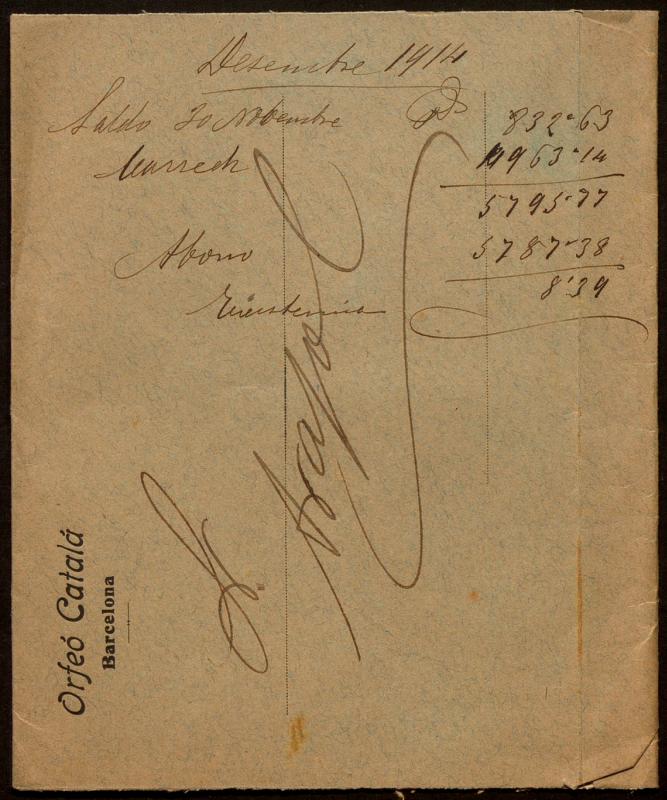 Desembre 1914
Saldo 30 Novembre 832-63
4963-14
5795-77
Abono 5787-38
Existencia 8'39
Orfeó Català
Barcelona